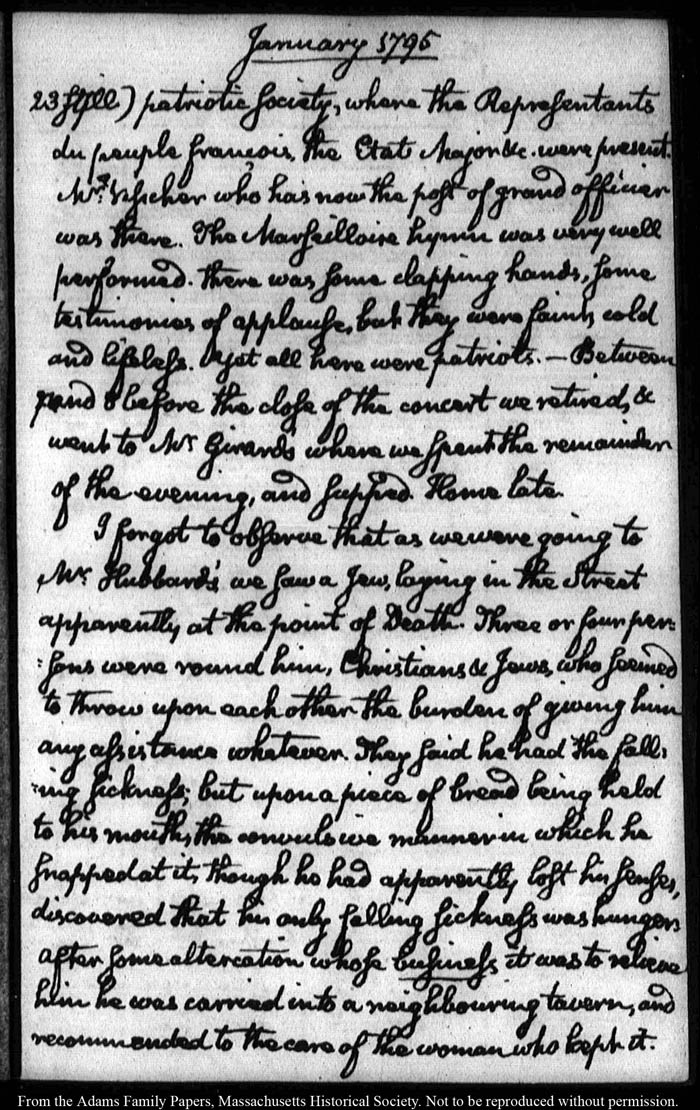 January 1795
23 still) patriotic Society, where the Representants
du peuple françois, the Etat Major &c. were present.
Mr. Visscher who has now the post of grand officier
was there. The Marseilloise hymn was very well
performed. there was some clapping hands, some
testimonies of applause, but they were faint, cold
and lifeless. Yet all here were patriots. — Between
7 and 8 before the close of the concert we retired, &
went to Mr Girard's where we spent the remainder
of the evening, and supped. Home late.
I forgot to observe that as we were going to
Mr. Hubbard's we saw a Jew, laying in the Street
apparently at the point of Death. Three or four per:
:sons were round him, Christians & Jews, who seemed
to throw upon each other the burden of giving him
any assistance whatever. They said he had the fall:
:ing sickness; but upon a piece of bread being held
to his mouth, the convulsive manner in which he
snapped at it, though he had apparently lost his senses,
discovered that his only falling sickness was hunger.
after some altercation whose business it was to relieve
him he was carried into a neighbouring tavern, and
recommended to the care of the woman who kept it.
From the Adams Family Papers, Massachusetts Historical Society. Not to be reproduced without permission.